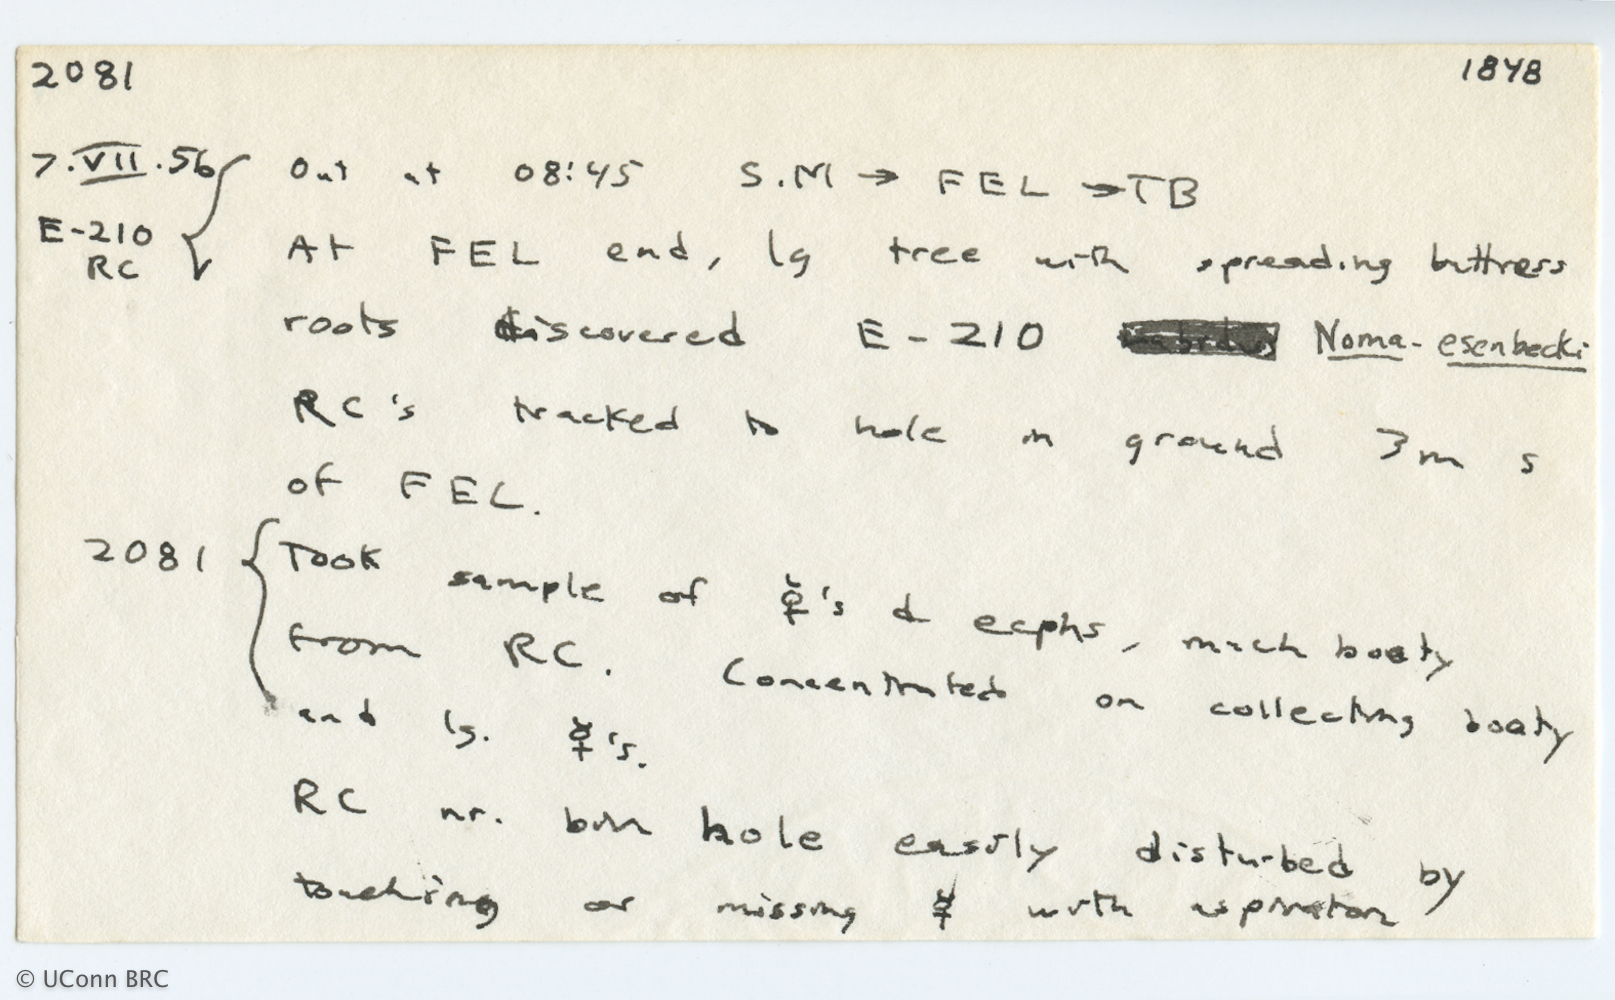 2081 1848
7.VII.56 Out at 08:45 S.M → FEL → TB
E-210 At FEL end, lg tree with spreading buttress
RC
roots discovered E-210 Noma-esenbecki
RC's tracked to hole in ground 3m s
of FEL.
2081 Took sample of ☿'s & ecphs, much booty
from RC. Concentrated on collecting booty
and lg. ☿'s.
RC nr. biv hole easily disturbed by
touching or missing ☿ with aspirator
© UConn BRC